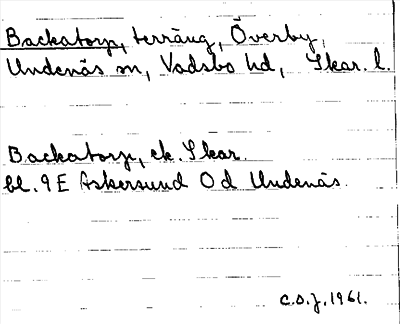 Backatorp, terräng, Överby,
Undenäs sn, Vadsbo hd, Skar. l.
Backatorp, ek. Skar.
bl. 9 E Askersund O d Undenäs.
C.O.J., 1961.